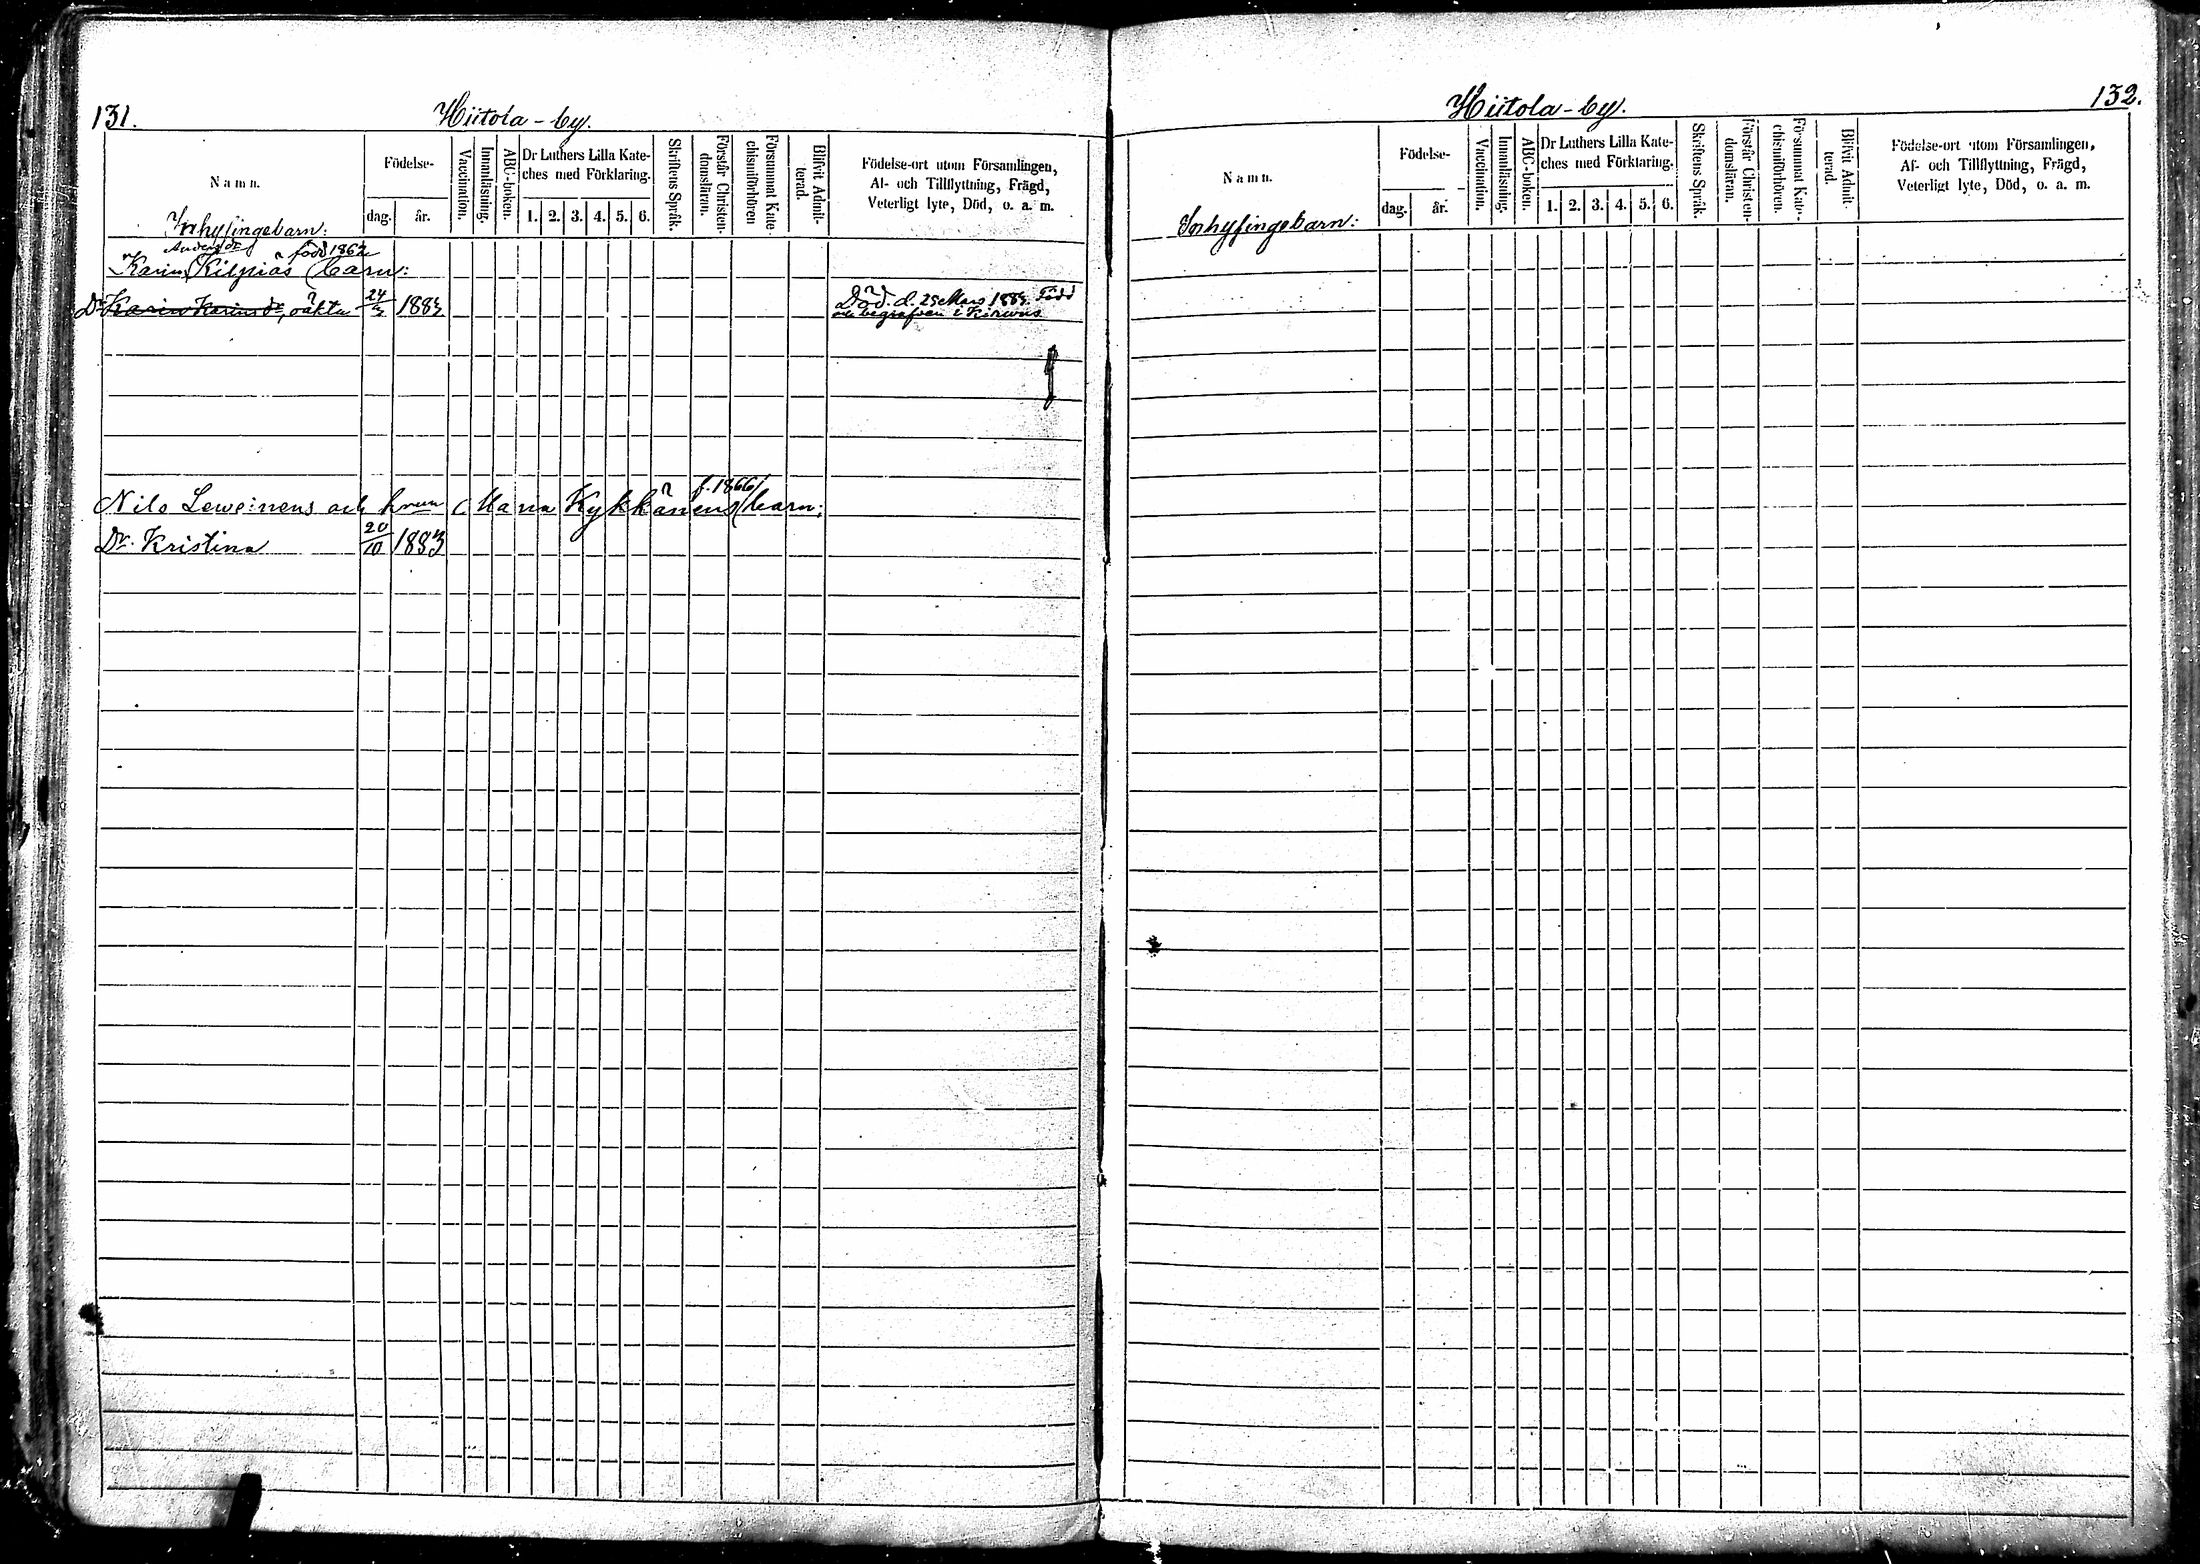 131.
Hiitola-by.
Namn.
Födelse-
dag.
år.
Vaccination.
Innanläsning.
ABC-boken.
Dr Luthers Lilla Kate-
ches med Förklaring.
1. 2. 3. 4. 5. 6.
Skriftens Språk.
Förstår Christen-
domsläran.
Försummat Kate-
chismiförhören
Blifvit Admit-
terad.
Födelse-ort utom Församlingen,
Af- och Tillflyttning, Frägd,
Veterligt lyte, Död, o. a. m.
Inhysingebarn:
Andersdr född 1862
Karin Kilpiäs barn:
Dr Karin Karinsdr, oäkta 24/3 1883
Död. d. 25 Mars 1883. Född
och begrafven i
f. 1866
Nils Leweinens och hrun Maria Kykkänens barn:
Dr. Kristina 20/10 1883
132.
Hiitola-by.
Namn.
Födelse-
dag.
år.
Vaccination.
Innanläsning.
ABC-boken.
Dr Luthers Lilla Kate-
ches med Förklaring.
1. 2. 3. 4. 5. 6.
Skriftens Språk.
Förstår Christen-
domsläran.
Försummat Kate-
chismiförhören.
Blifvit Admit-
terad.
Födelse-ort utom Församlingen,
Af- och Tillflyttning, Frägd,
Veterligt lyte, Död, o. a. m.
Inhysingebarn: